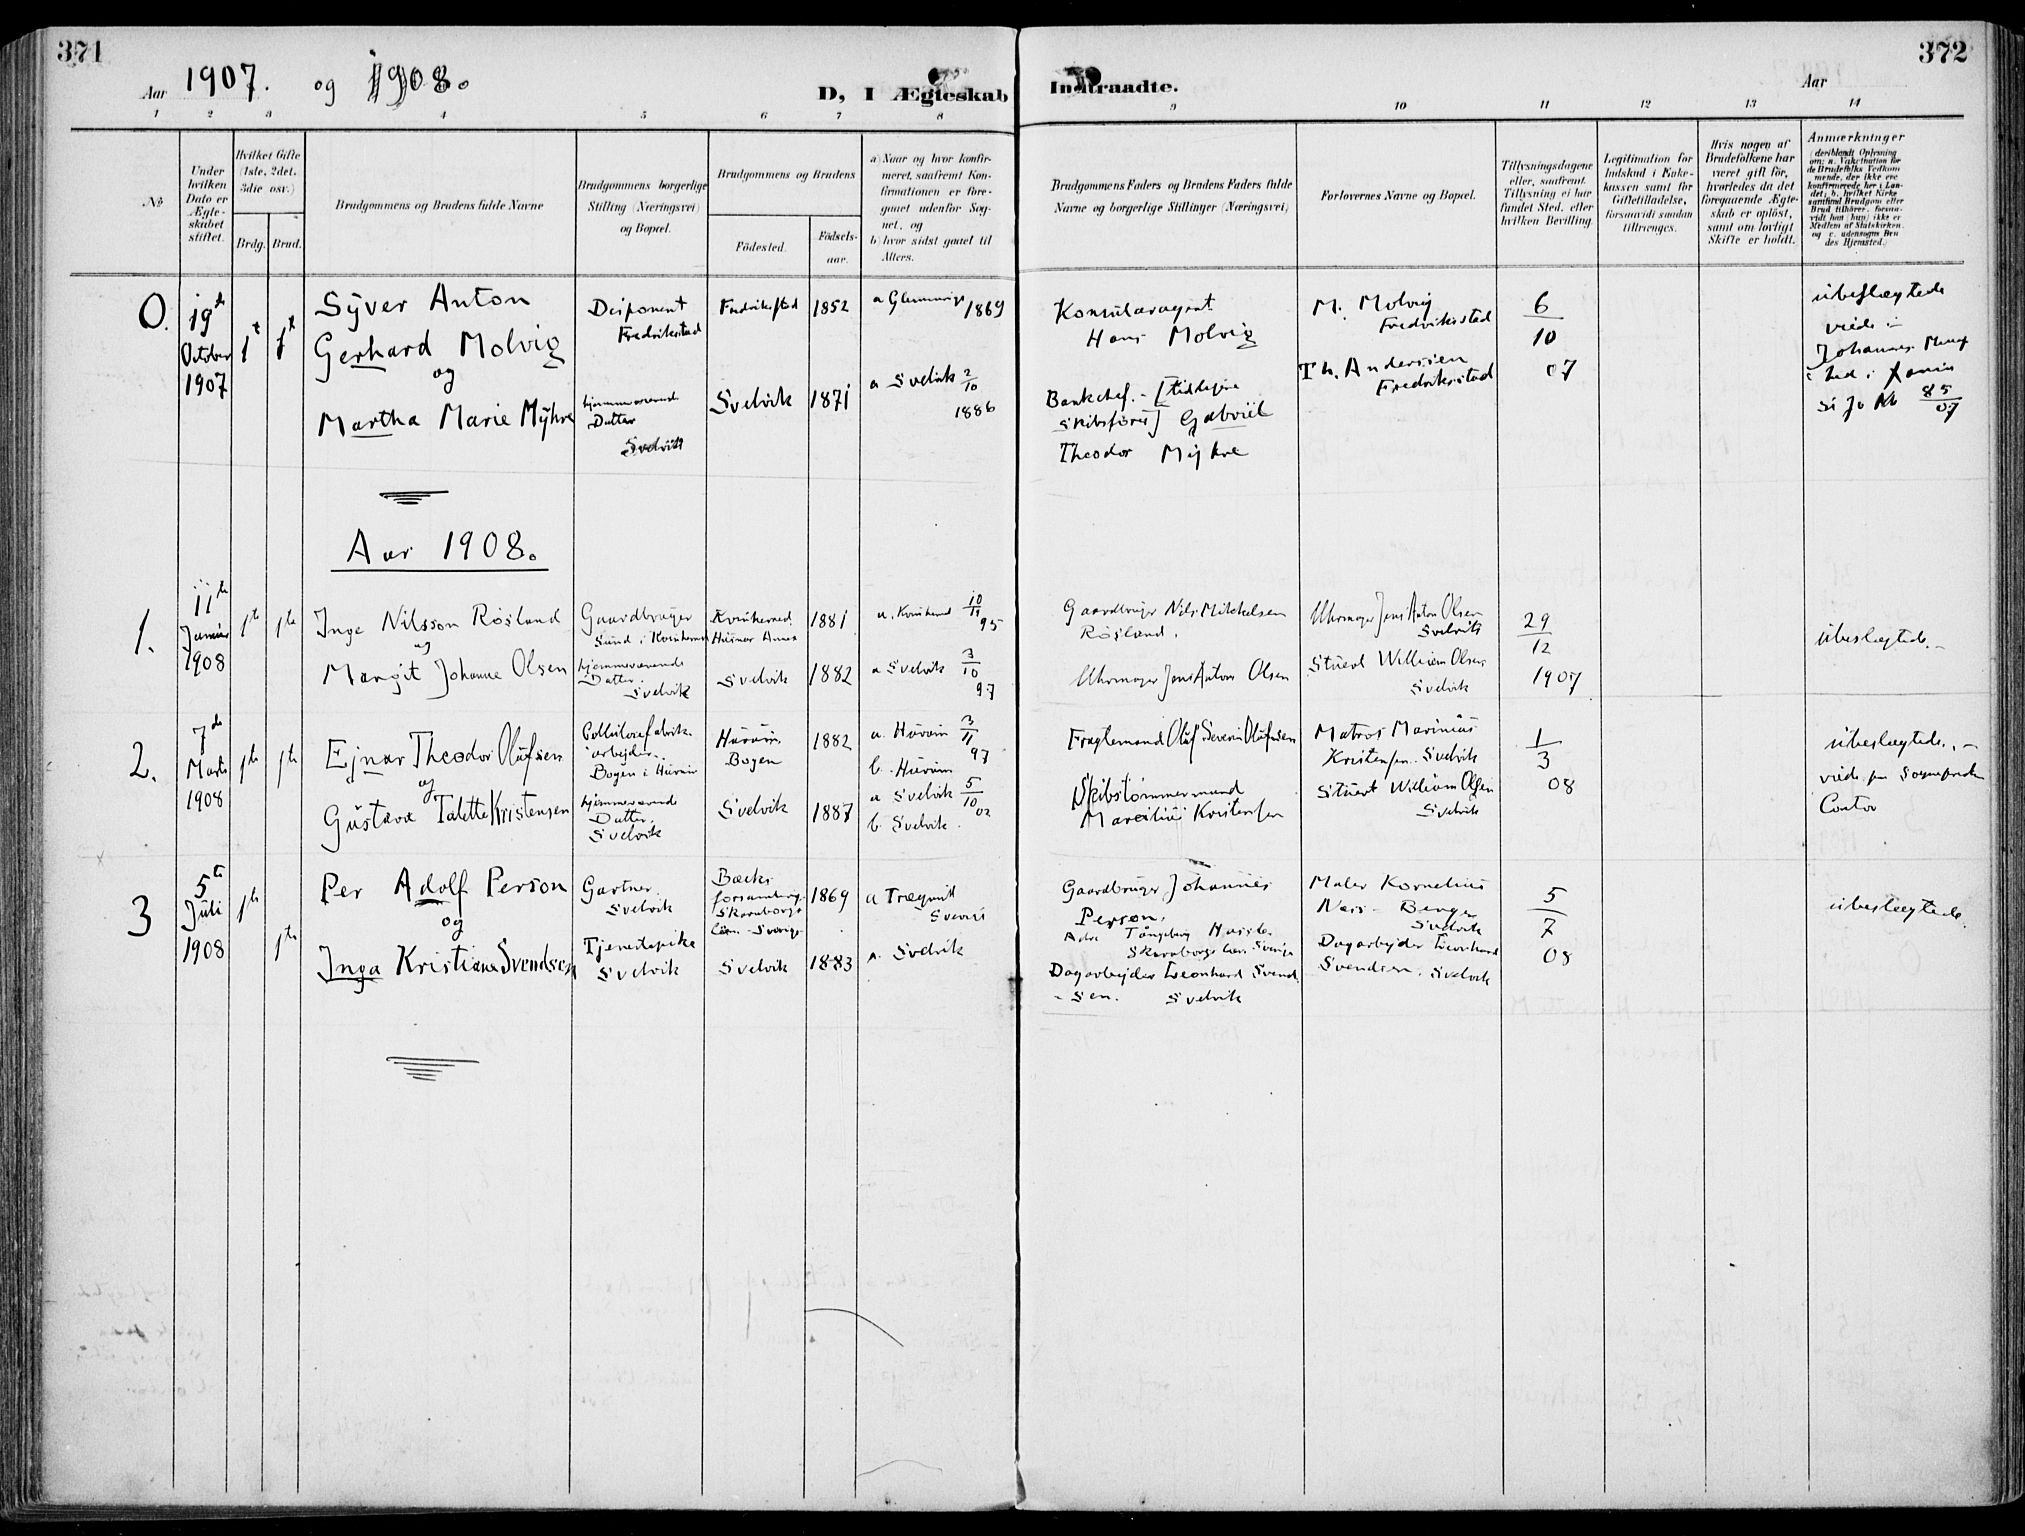 371
Aar 1907. og 1908.
D, I Ægteskab Indtraadte.
Aar
372
1 2 3 4 5 6 7 8 9 10 11 12 13 14
№
Under hvilken Dato er Ægteskabet stiftet.
Hvilket Gifte (1ste, 2det, 3die osv.)
Brdg. Brud.
Brudgommens og Brudens fulde Navne
Brudgommens borgerlige Stilling (Næringsvei) og Bopæl.
Brudgommens og Brudens
Födested.
Födsels-aar.
a) Naar og hvor konfirmeret, saafremt Konfirmationen er foregaaet udenfor Sognet, og
b) hvor sidst gaaet til Alters.
Brudgommens Faders og Brudens Faders fulde Navne og borgerlige Stillinger (Næringsvei)
Forlovernes Navne og Bopæl.
Tillysningsdagene eller, saafremt Tillysning ei har fundet Sted, efter hvilken Bevilling.
Legitimation for Indskud i Enkekassen samt for Giftetilladelse, forsaavidt saadan tiltrænges.
Hvis nogen af Brudefolkene har været gift för, hvorledes da det foregaaende Ægteskab er oplöst, samt om lovligt Skifte er holdt.
Anmærkninger
0.
19de October 1907
1t 1t
Syver Anton
Gerhard Molvig
og
Martha Marie Myhre
Disponent
Fredrikstad
hjemmeværende
Datter
Svelvik
Fredrikstad 1852
Svelvik 1871
a Glemminge 1869
a Svelvik 2/10 1886
Konsularagent
Hans Molvig
Bankchef. - [tidligere
Skibsfører] Gabriel
Theodor Myhre
M. Molvig
Fredriksstad
Th. Anderssen
Fredriksstad
6/10 07
ubeslægtede
viede i
Johannes
85/07
Aar 1908.
1.
11te Januar 1908
1te 1te
Inge Nilsson Røsland
og
Margit Johanne Olsen
Gaardbruger
Sund i Kvinherred
hjemmeværende
Datter.
Svelvik
Kvinherred
Husnæs Annex
1881
Svelvik 1882
a. Kvinherred 10/11 95
a Svelvik 3/10 97
Gaardbruger Nils Mikkelsen
Røsland.
Uhrmager Jens Anton Olsen
Uhrmager Jens Anton Olsen
Svelvik
Stuert William Olsen
Svelvik
29/12 1907
ubeslægtede. -
2.
7de Marts 1908
1te 1te
Ejnar Theodor Olufsen
og
Gustava Talette Kristensen
Cellulosefabrik-
arbejder.
Bogen i Hurum
hjemmeværende
Datter.
Svelvik
Hurum.
Bogen
1882
Svelvik 1887
a. Hurum 3/11 97
b. Hurum
a Svelvik 5/10 02
b. Svelvik.
Fragtemand Oluf Severin Olufsen
Skibstømmermand
Marcilius Kristensen
Matros Marinius
Kristensen. Svelvik
Stuert William Olsen
Svelvik
1/3 08
ubeslægtede. -
viede paa Sognepræstens
Contor
3
5te Juli 1908
1te
1te
Per Adolf Person
og
Inga Kristiane Svendsen
Gartner.
Svelvik
Tjenestepike
Svelvik
Bæcks
forsamling.
Skaraborgs
Län - Sverige
1869
Svelvik 1883
a Træqvist
Sverige
a. Svelvik
Gaardbruger Johannes
Person.
Skaraborgs län. Sverige
Dagarbejder Leonhard Svend-
-sen. Svelvik
Maler Kornelius
Svelvik
Dagarbejder Leonhard
Svendsen. Svelvik
5/7 08
ubeslægtede.